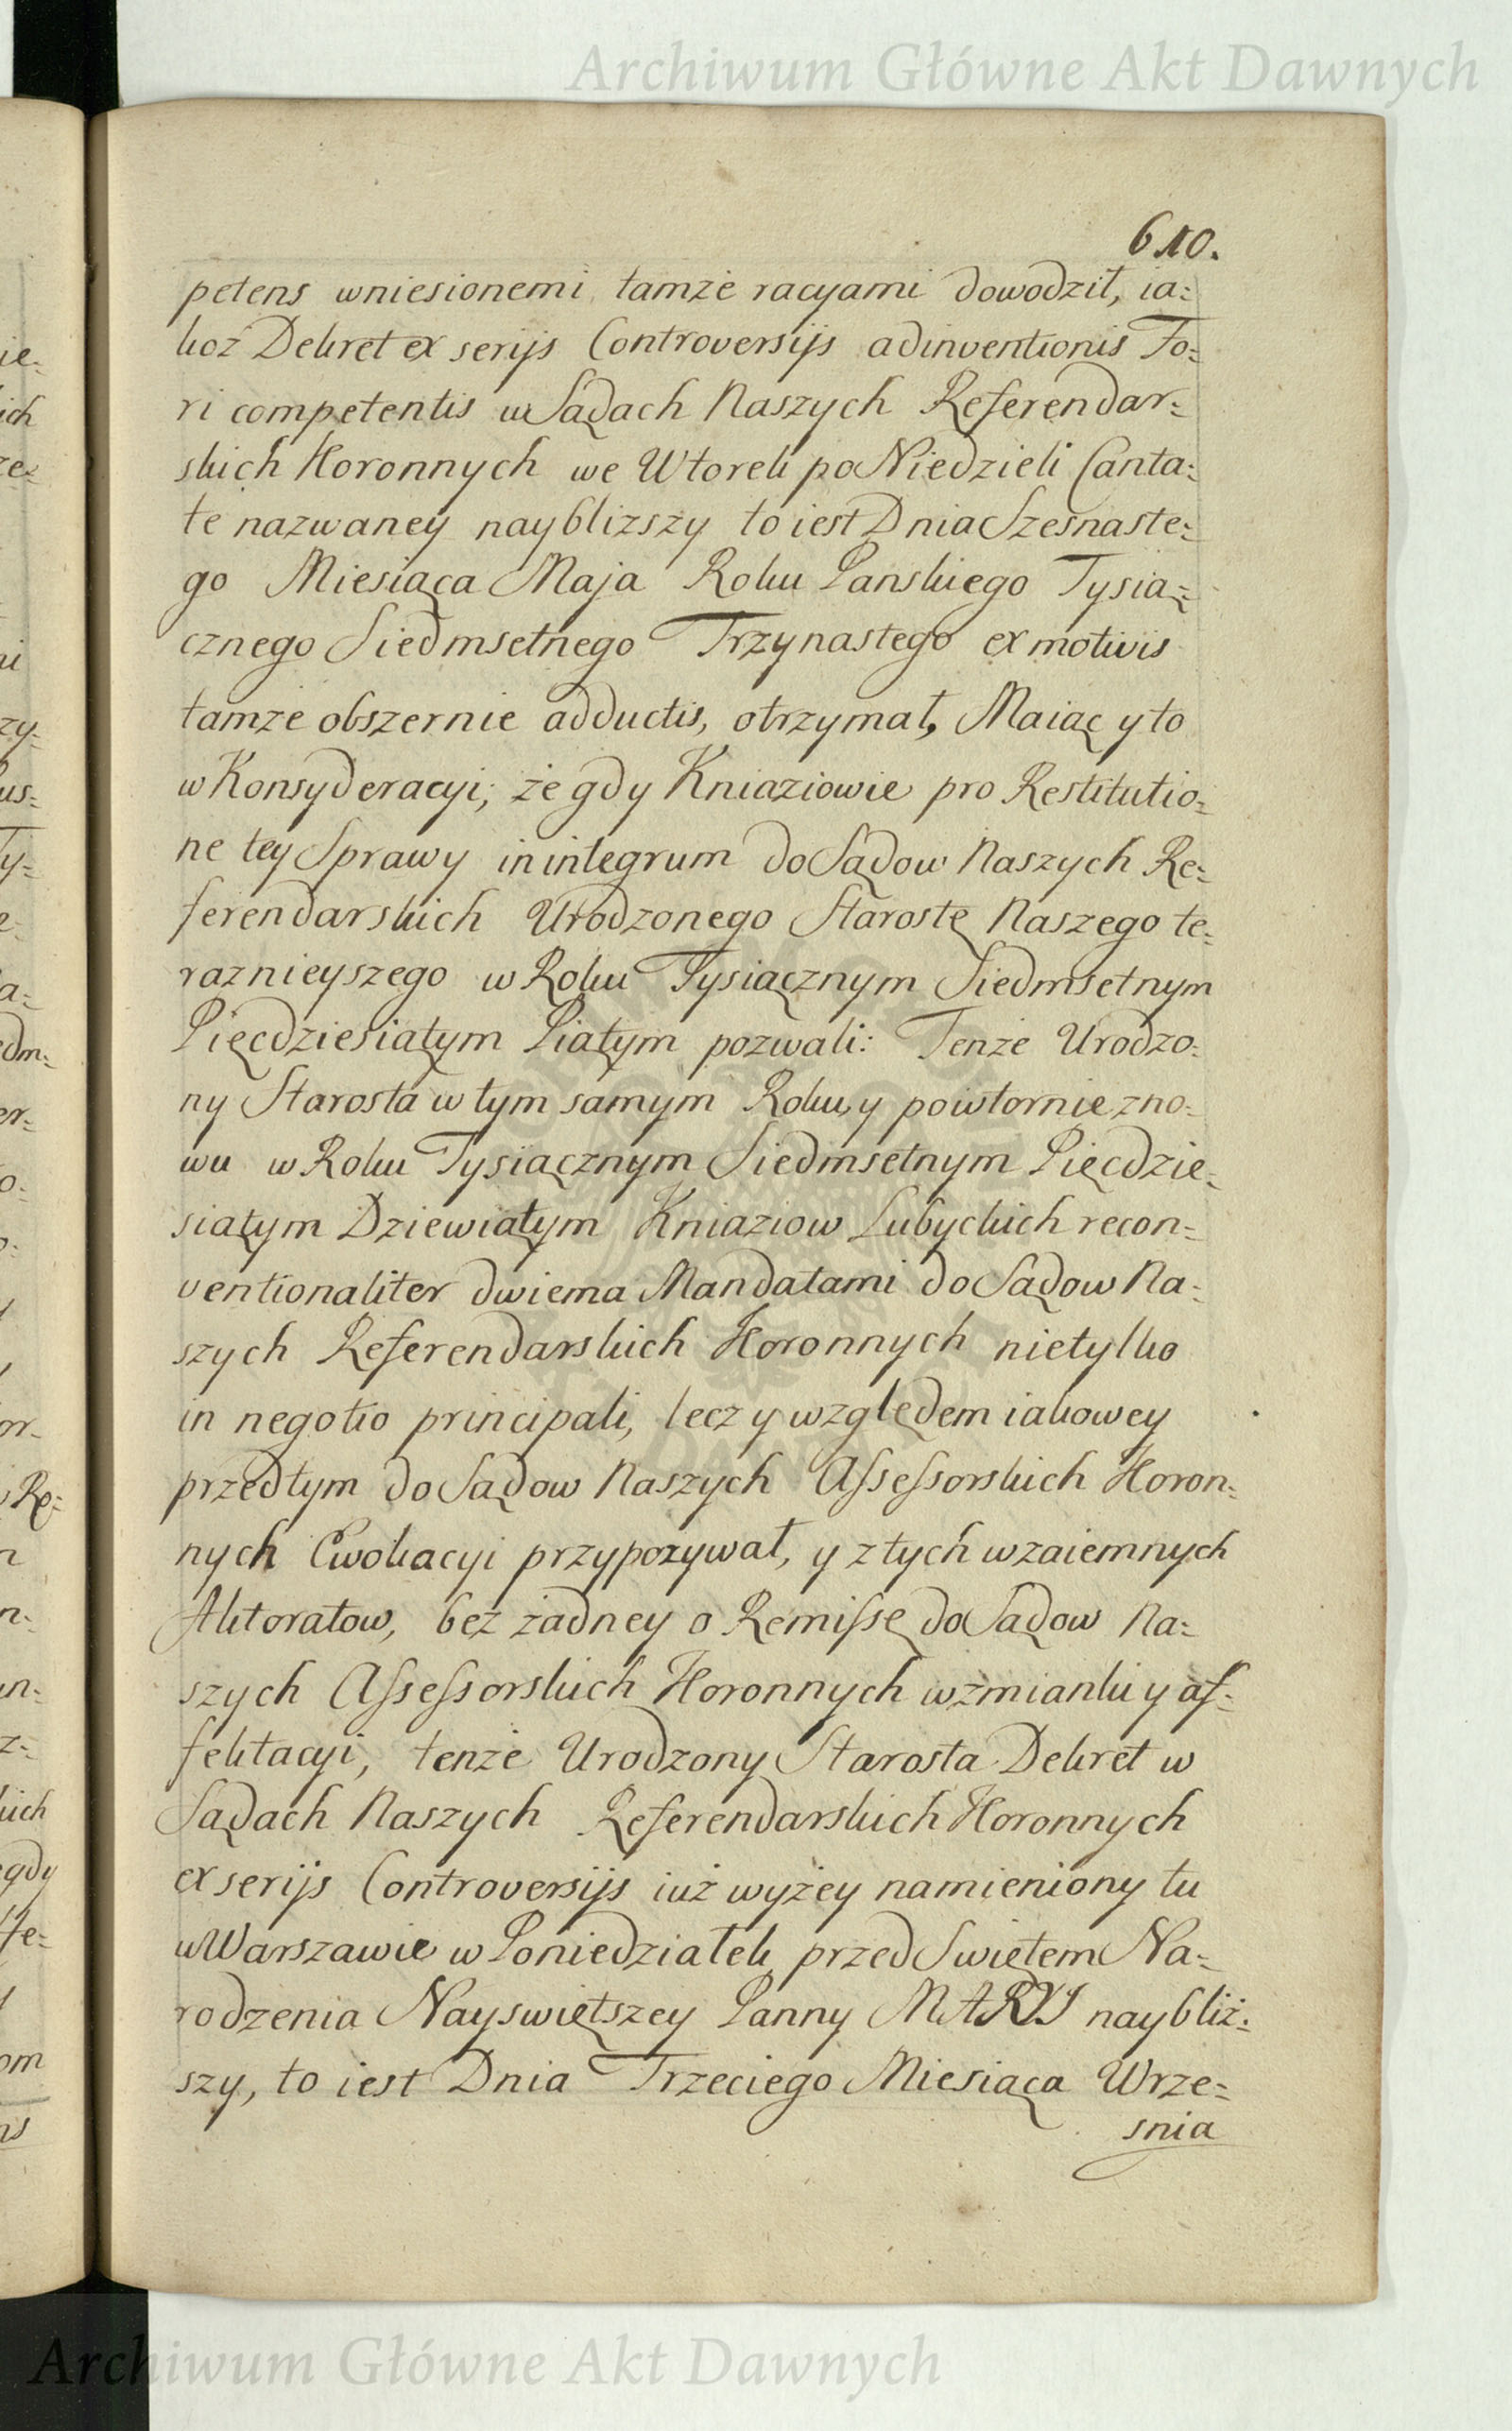 Archiwum Główne Akt Dawnych
610.
petens wniesionemi tamże racyami dowodził, ia=
koż Dekret ex serijs Controversijs adinventionis Fo=
ri competentis w Sądach Naszych Referendar=
skich Koronnych we Wtorek po Niedzieli Canta=
te nazwaney naybliższy to iest Dnia Szesnaste=
go Miesiąca Maja Roku Panskiego Tysią=
cznego Siedmsetnego Trzynastego ex motivis
tamże obszernie adductis, otrzymał, Maiąc y to
w Konsyderacyi, że gdy Kniaziowie pro Restitutio=
ne tey Sprawy in integrum do Sądow Naszych Re=
ferendarskich Urodzonego Starostę Naszego te=
raznieyszego w Roku Tysiącznym Siedmsetnym
Pięcdziesiątym Piątym pozwali: Tenże Urodzo=
ny Starosta w tym samym Roku, y powtornie zno=
wu w Roku Tysiącznym Siedmsetnym Pięcdzie=
siątym Dziewiątym Kniaziow Lubyckich recon=
ventionaliter dwiema Mandatami do Sądow Na=
szych Referendarskich Koronnych nietylko
in negotio principali, lecz y względem iakowey
przedtym do Sądow Naszych Assessorskich Koron=
nych Ewokacyi przypozywał, y z tych wzaiemnych
Aktoratow, bez żadney o Remissę do Sądow Na=
szych Assessorskich Koronnych wzmianki y af=
fektacyi, tenże Urodzony Starosta Dekret w
Sądach Naszych Referendarskich Koronnych
ex serijs Controversijs iuż wyżey namieniony tu
w Warszawie w Poniedziałek przed Swiętem Na=
rodzenia Nayswiętszey Panny MARYI naybliż=
szy, to iest Dnia Trzeciego Miesiąca Wrze=
snia
Archiwum Główne Akt Dawnych